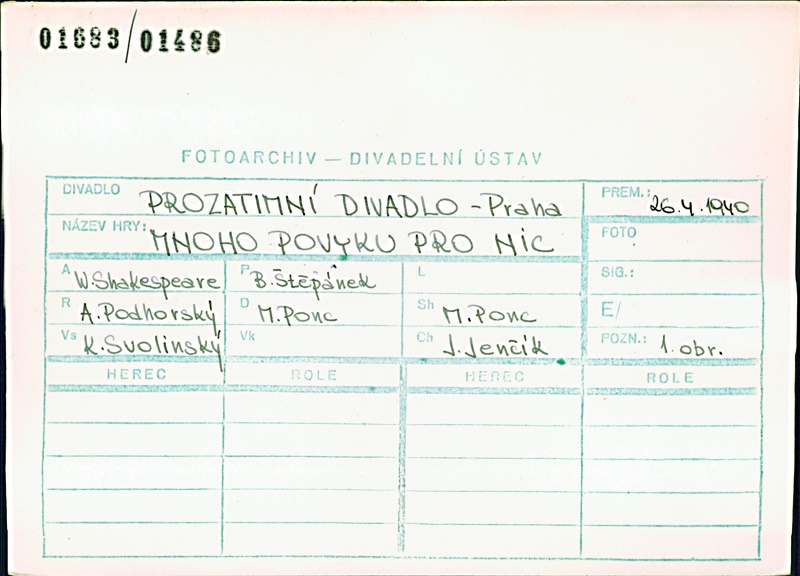 01683/01486
FOTOARCHIV — DIVADELNÍ ÚSTAV
DIVADLO PROZATIMNÍ DIVADLO - Praha PREM.: 26.4.1940
NÁZEV HRY: MNOHO POVYKU PRO NIC FOTO
A W. Shakespeare P B. Štěpánek L SIG.:
R A. Podhorský D M. Ponc Sh M. Ponc E/
Vs K. Svolinský Vk Ch J. Jenčík POZN.: 1. obr.
HEREC ROLE HEREC ROLE